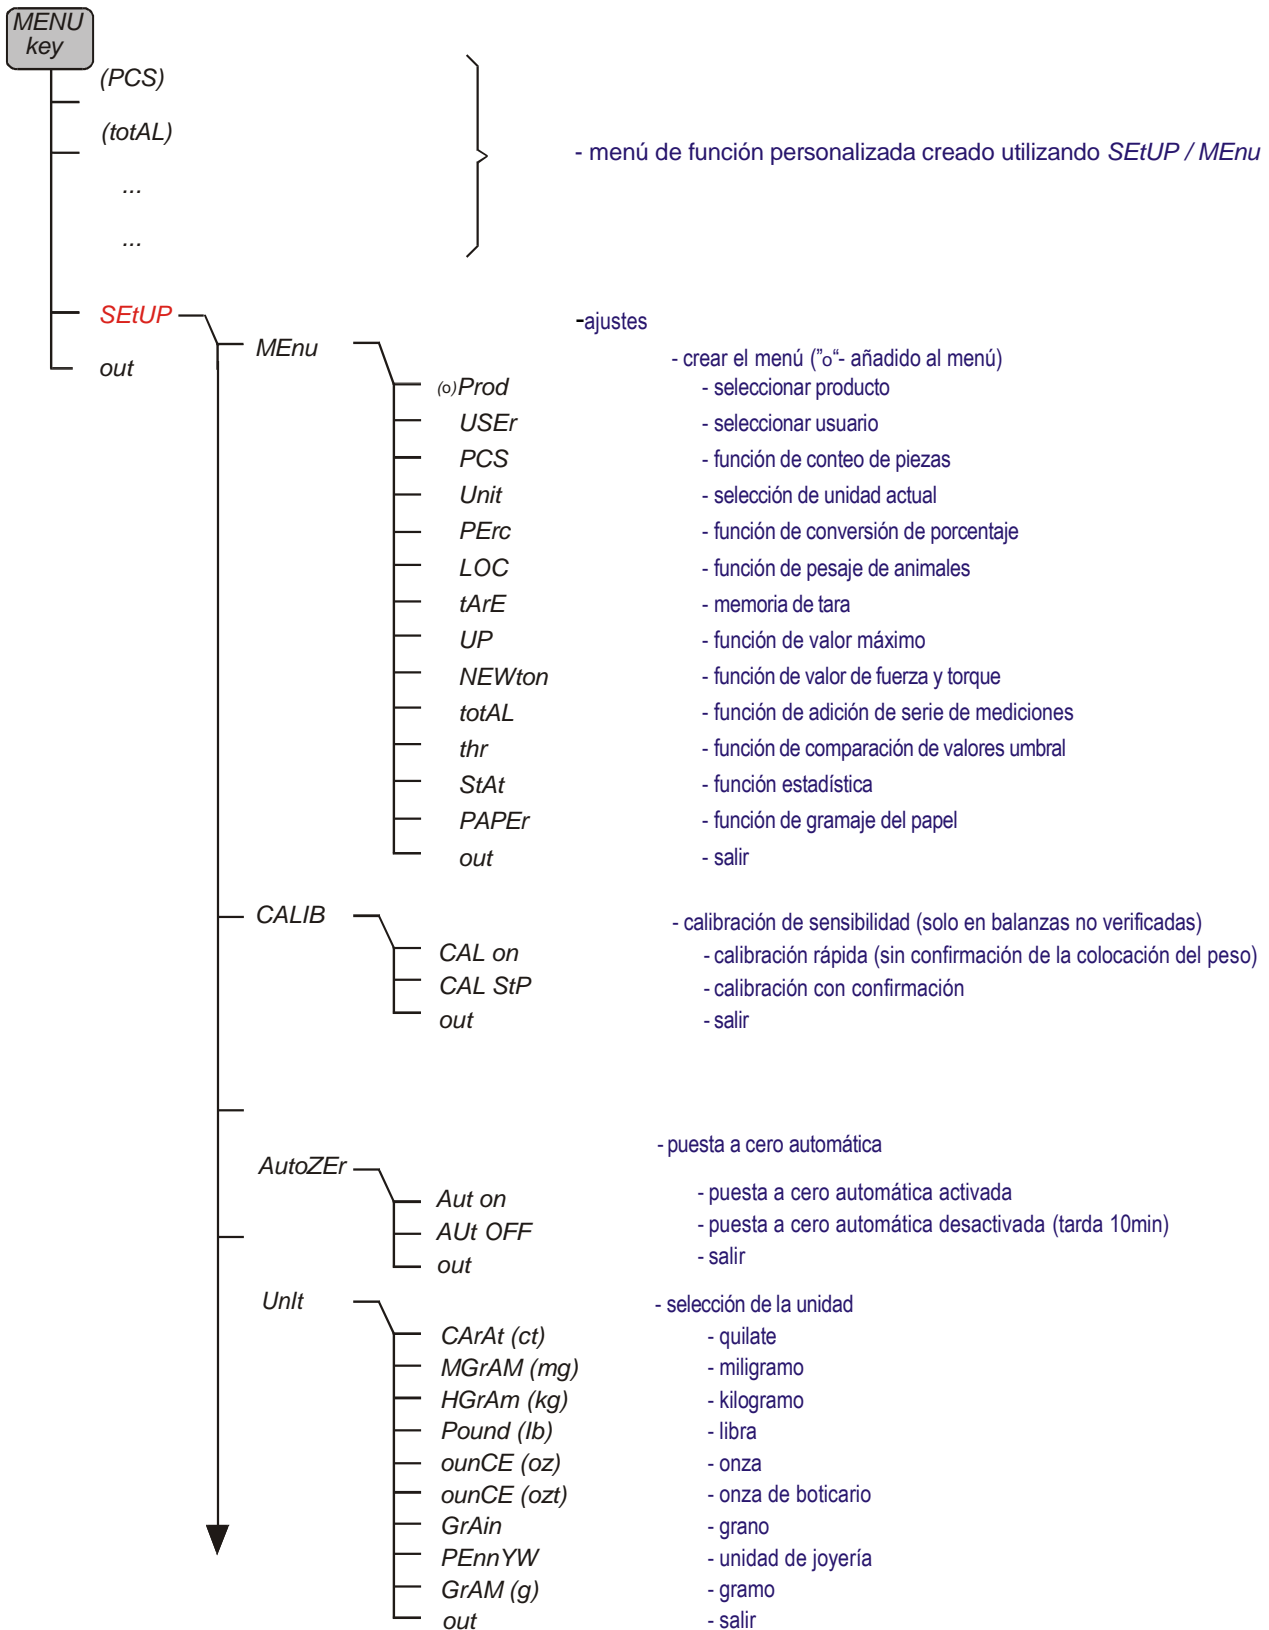 MENU
key
(PCS)
(totAL)
- menú de función personalizada creado utilizando SEtUP / MEnu
...
...
SEtUP
-ajustes
out
MEnu
- crear el menú (”o“- añadido al menú)
(o)Prod - seleccionar producto
USEr - seleccionar usuario
PCS - función de conteo de piezas
Unit - selección de unidad actual
PErc - función de conversión de porcentaje
LOC - función de pesaje de animales
tArE - memoria de tara
UP - función de valor máximo
NEWton - función de valor de fuerza y torque
totAL - función de adición de serie de mediciones
thr - función de comparación de valores umbral
StAt - función estadística
PAPEr - función de gramaje del papel
out - salir
CALIB - calibración de sensibilidad (solo en balanzas no verificadas)
CAL on - calibración rápida (sin confirmación de la colocación del peso)
CAL StP - calibración con confirmación
out - salir
AutoZEr - puesta a cero automática
Aut on - puesta a cero automática activada
AUt OFF - puesta a cero automática desactivada (tarda 10min)
out - salir
UnIt - selección de la unidad
CArAt (ct) - quilate
MGrAM (mg) - miligramo
HGrAm (kg) - kilogramo
Pound (lb) - libra
ounCE (oz) - onza
ounCE (ozt) - onza de boticario
GrAin - grano
PEnnYW - unidad de joyería
GrAM (g) - gramo
out - salir